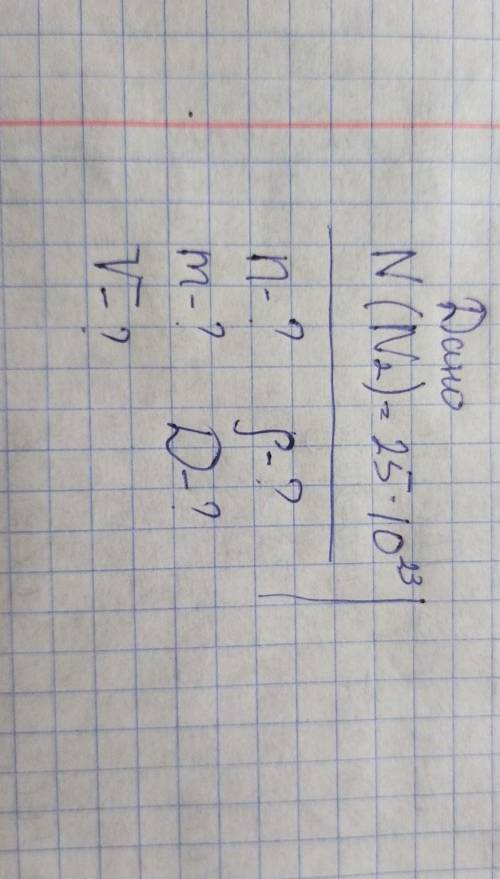 Дано
N(N₂)=25·10²³
n-? ρ-?
m-? D-?
V-?